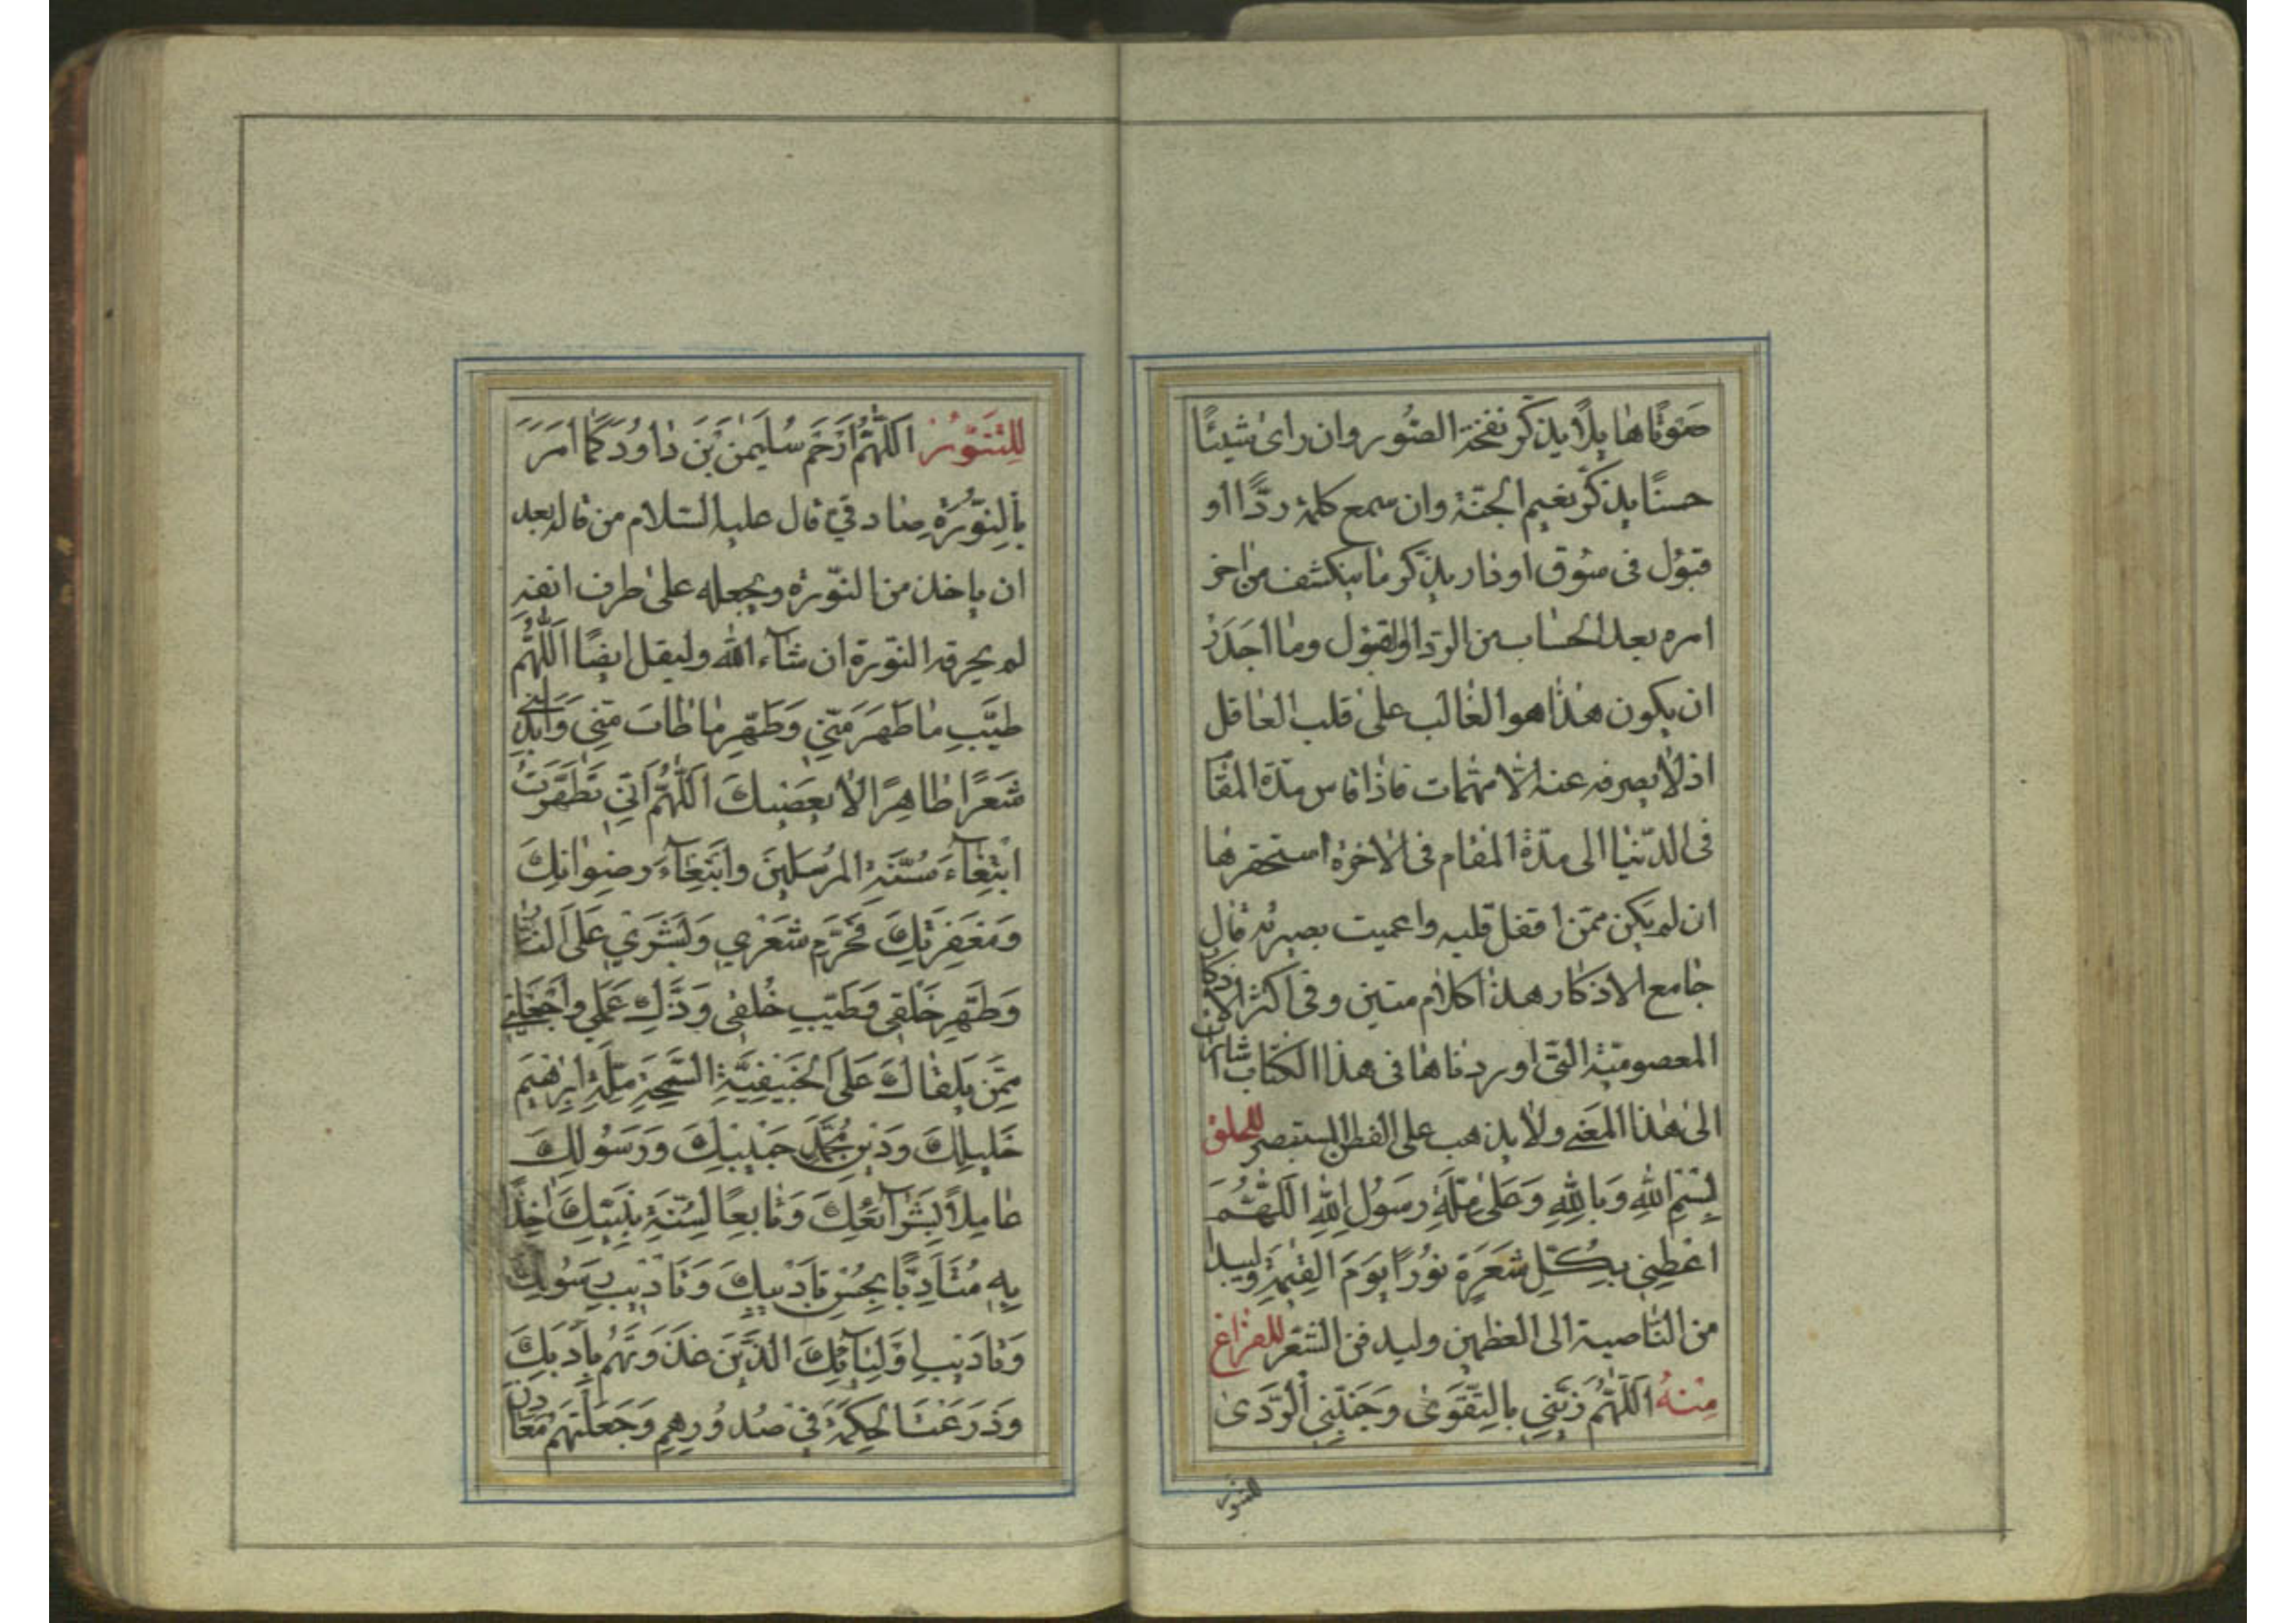 صوتًا هائلًا يذكر نفخة الصّور وان رای شيئًا
حسنًا يذكر نعيم الجنّة وان سمع كلمة ردًّا او
قبول فی سوق او دار يذكر ما ينكشف من اخر
امره بعد الحساب من الرّد او القبول وما اجدرُ
ان يكون هذا هو الغالب على قلب العاقل
اذ لا يصرفه عنه الّا مهمّات فاذا قاس مدّة المقا
فی الدّنيا الى مدّة المقام فی الاخرة استحقرها
ان لم يكن ممّن اقفل قلبه واعميت بصيرته قال
جامع الاذكار هذا كلام متين وفی اكثر الاذكار
المعصوميّة الّتی اوردناها فی هذا الكتاب اشارات
الى هذا المعنى ولا يذهب على الفطن المستبصر للحلق
بِسْمِ اللهِ وَبِاللهِ وَعَلى مِلَّةِ رَسُولِ اللهِ اَللّهُمَّ
اعْطِنِي بِكُلِّ شَعَرَةٍ نُورًا يَوْمَ القِيمَةِ وليبدا
من النّاصية الى العظمين وليدفن الشّعر للفراغ
مِنْهُ اَللّهُمَّ زَيِّنِّي بِالتَّقْوَى وَجَنِّبْنِي الرَّدَى
للتنور
لِلتَّنَوُّرِ اَللّهُمَّ ارْحَمْ سُلَيْمنَ بْنَ دَاوُدَ كَمَا اَمَرَ
بِالنُّورَةِ صادقی قال عليه السّلام من قاله بعد
ان ياخذ من النّورة ويجعله على طرف انفه
لم يحرقه النّورة ان شاء الله وليقل ايضًا اَللّهُمَّ
طَيِّبْ مَا طَهُرَ مِنِّي وَطَهِّرْ مَا طَابَ مِنِّي وَاَبْدِلْنِي
شَعَرًا طَاهِرًا لا يَعْصِيكَ اَللّهُمَّ اِنِّي تَطَهَّرْتُ
ابْتِغَاءَ سُنَّةِ المُرْسَلِينَ وَابْتِغَاءَ رِضْوَانِكَ
وَمَغْفِرَتِكَ فَحَرِّمْ شَعْرِي وَبَشَرِي عَلَى النَّارِ
وَطَهِّرْ خَلْقِي وَطَيِّبْ خُلُقِي وَزَكِّ عَمَلِي وَاجْعَلْنِي
مِمَّنْ يَلْقَاكَ عَلَى الحَنِيفِيَّةِ السَّمْحَةِ مِلَّةِ اِبْرهِيمَ
خَلِيلِكَ وَدِينِ مُحَمَّدٍ حَبِيبِكَ وَرَسُولِكَ
عَامِلاً بِشَرَائِعِكَ وَتَابِعًا لِسُنَّةِ نَبِيِّكَ اخِذًا
بِهِ مُتَاَدِّبًا بِحُسْنِ تَاْدِيبِكَ وَتَاْدِيبِ رَسُولِكَ
وَتَاْدِيبِ اَوْلِيَائِكَ الَّذِينَ غَذَوْتَهُمْ بِاَدَبِكَ
وَزَرَعْتَ الحِكْمَةَ فِي صُدُورِهِمْ وَجَعَلْتَهُمْ مَعَادِنَ